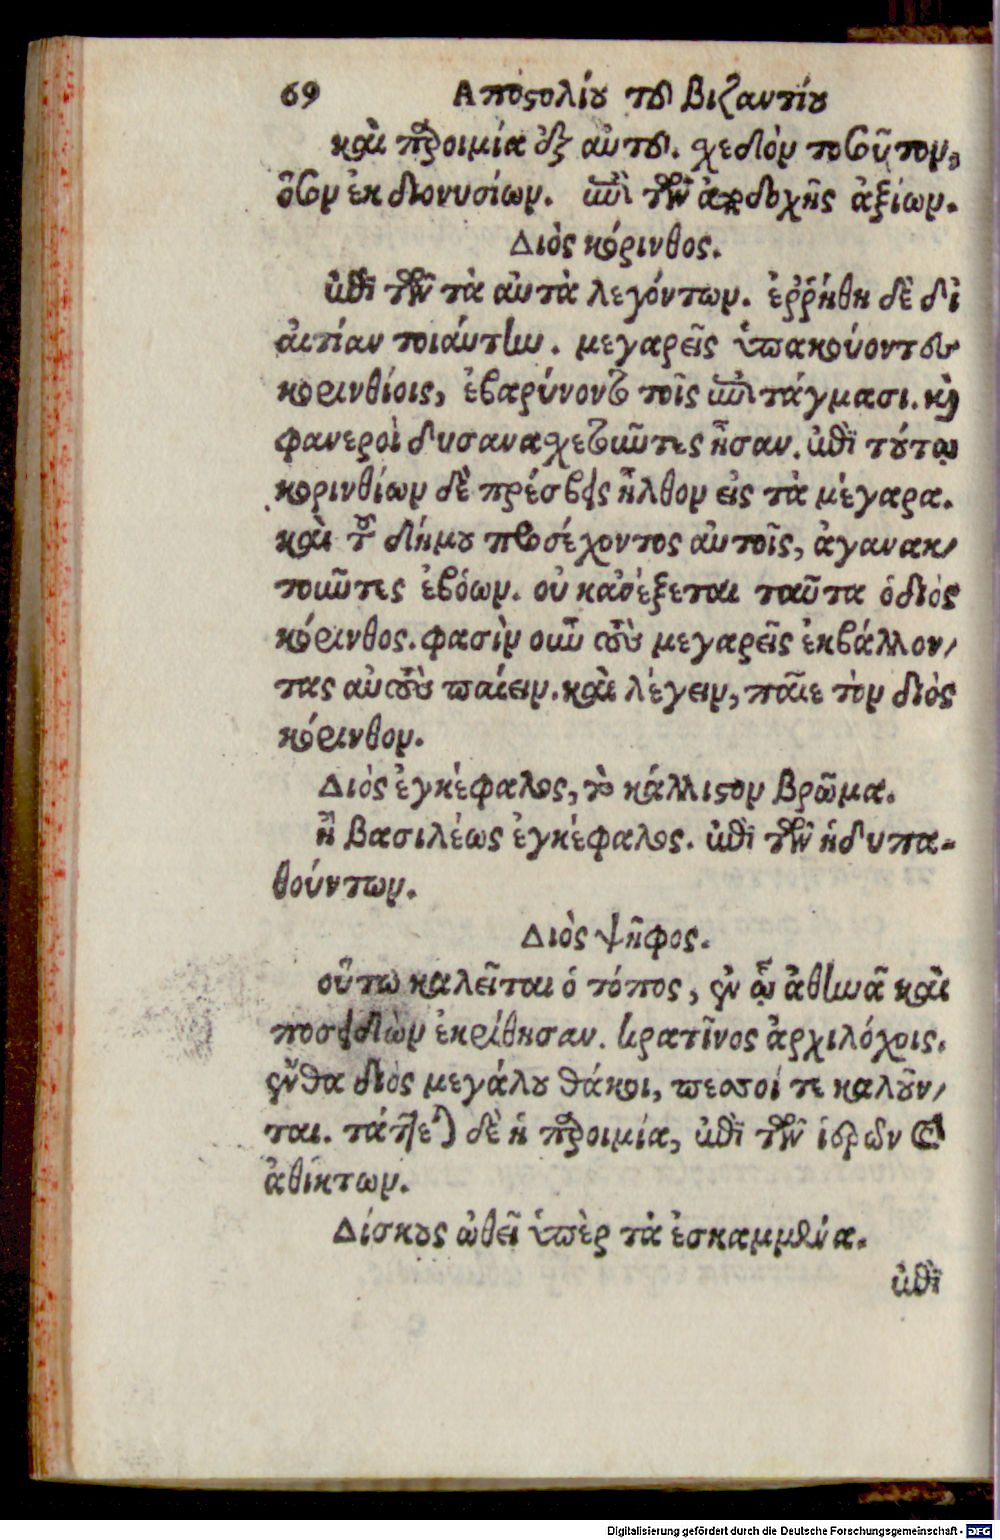 69 Αποστολίου τοῦ βιζαντίου
καὶ παροιμία ἐξ αὐτοῦ. σχεδὸν τοσοῦτον,
ὅσον ἐκ διονυσίων. ἐπὶ τῶν ἀποδοχῆς ἀξίων.
Διὸς κόρινθος.
ἐπὶ τῶν τὰ αὐτὰ λεγόντων. ἐῤῥήθη δὲ δι
αἰτίαν τοιάυτην. μεγαρεῖς ὑπακούοντες
κορινθίοις, ἐβαρύνοντο τοῖς ἐπιτάγμασι. καὶ
φανεροὶ δυσανασχετοῦντες ἦσαν. ἐπὶ τούτῳ
κορινθίων δὲ πρέσβεις ἦλθον εἰς τὰ μέγαρα.
καὶ τοῦ δήμου προσέχοντος αὐτοῖς, ἀγανακ/
τοῦντες ἐβόων. οὐ καθέξεται ταῦτα ὁ διὸς
κόρινθος. φασὶν οὖν τοὺς μεγαρεῖς ἐκβάλλον/
τας αὐτοὺς παίειν. καὶ λέγειν, παῖε τὸν διὸς
κόρινθον.
Διὸς ἐγκέφαλος, τὸ κάλλιστον βρῶμα.
ἢ βασιλέως ἐγκέφαλος. ἐπὶ τῶν ἡδυπα-
θούντων.
Διὸς ψῆφος.
οὕτω καλεῖται ὁ τόπος, ἐν ᾧ ἀθηνᾶ καὶ
ποσειδῶν ἐκρίθησαν. κρατῖνος ἀρχιλόχοις.
ἔνθα διὸς μεγάλου θάκοι, πεσσοί τε καλοῦν/
ται. τάττεται δὲ ἡ παροιμία, ἐπὶ τῶν ἱερῶν καὶ
ἀθίκτων.
Δίσκους ὠθεῖ ὑπὲρ τὰ ἐσκαμμένα.
ἐπὶ
Digitalisierung gefördert durch die Deutsche Forschungsgemeinschaft - DFG